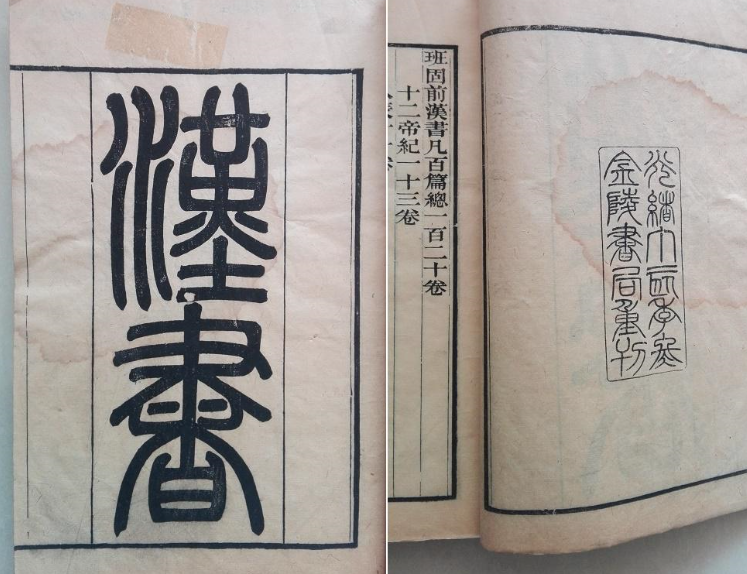 漢書
班固前漢書凡百篇總一百二十卷
十二帝紀一十三卷
光緒丁亥季冬
金陵書局重刊